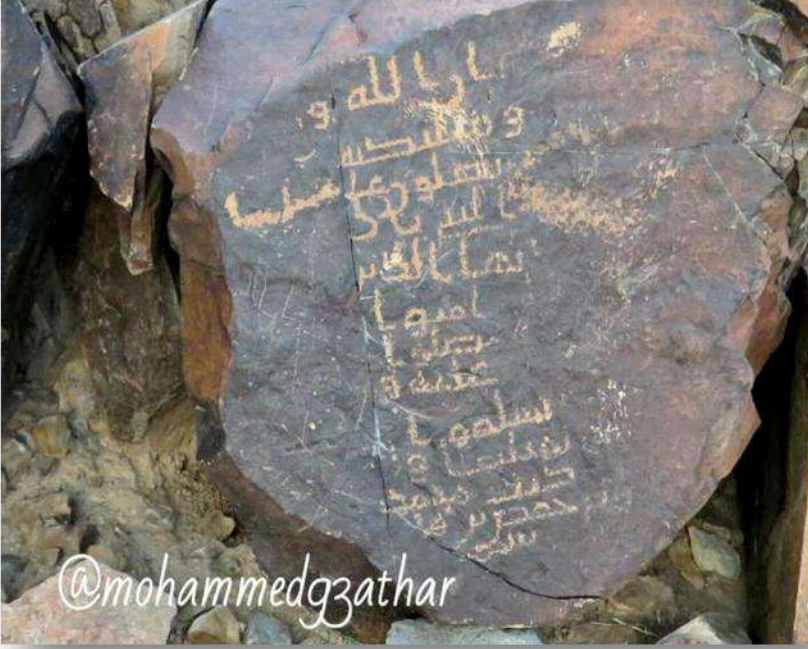 ان الله و
وملئكته
يصلون على
النبي يا
يها الذين
امنوا
صلوا
عليه و
سلموا
تسليما و
كتب محمد
@mohammedgzathar